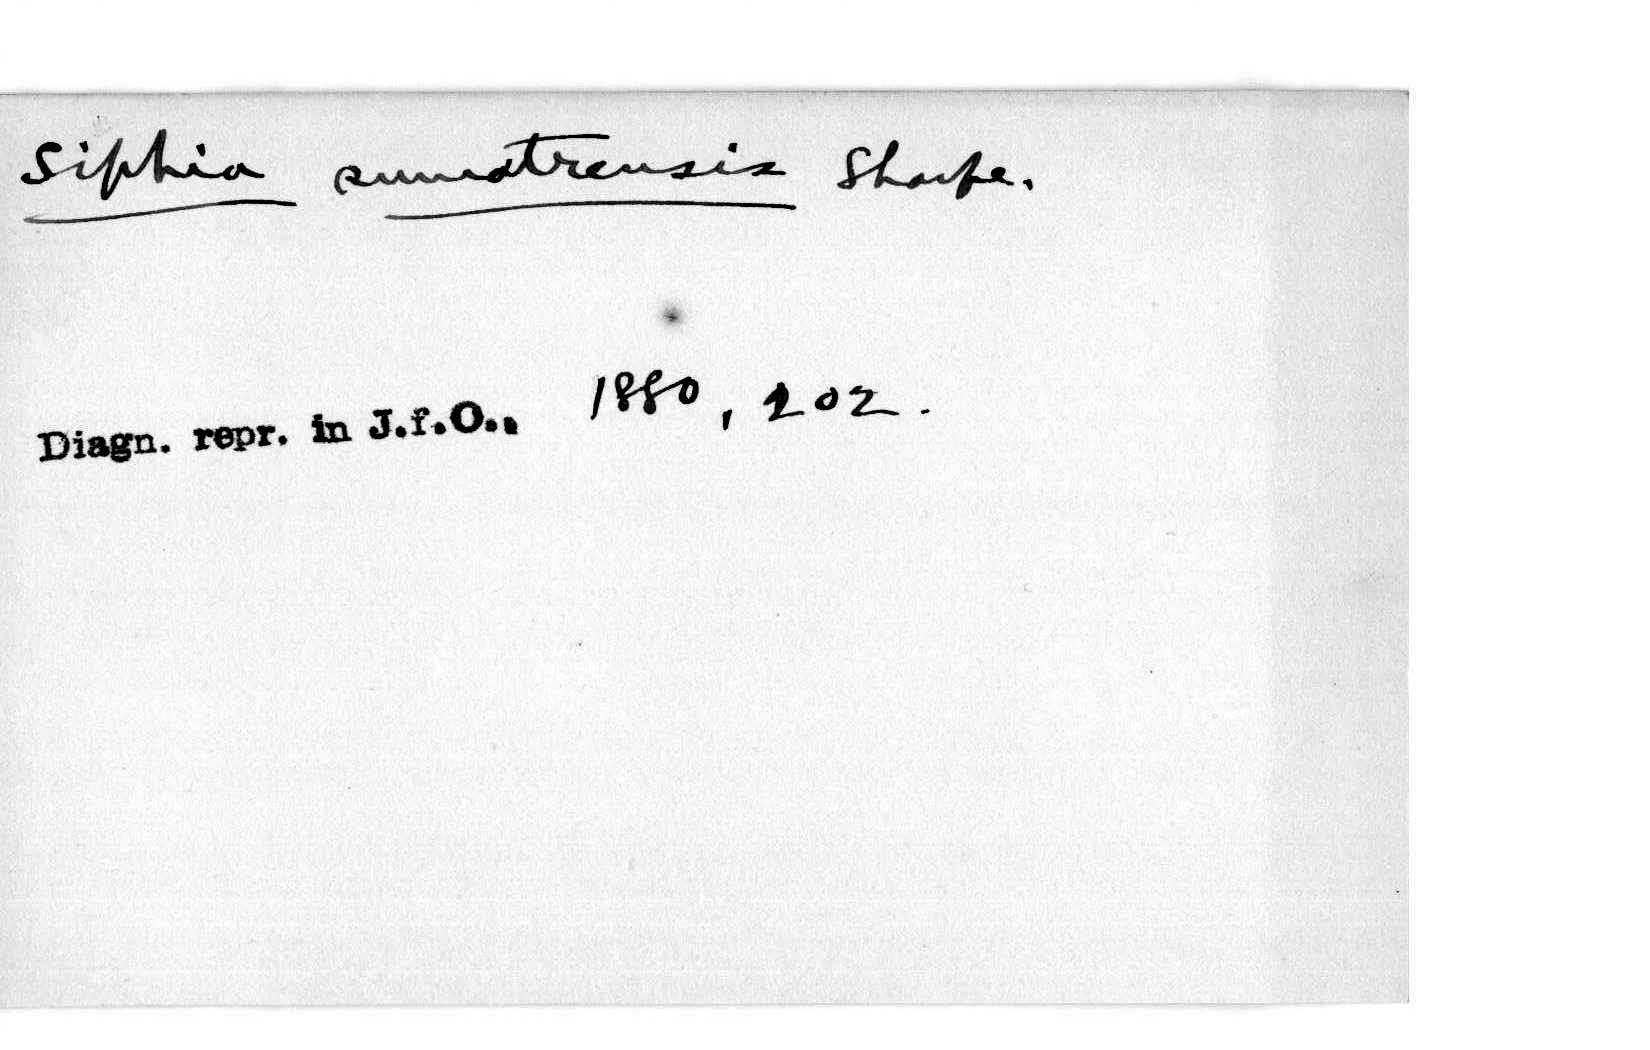 Siphia sumatrensis Sharpe.
Diagn. repr. in J.f.O., 1880, 202.